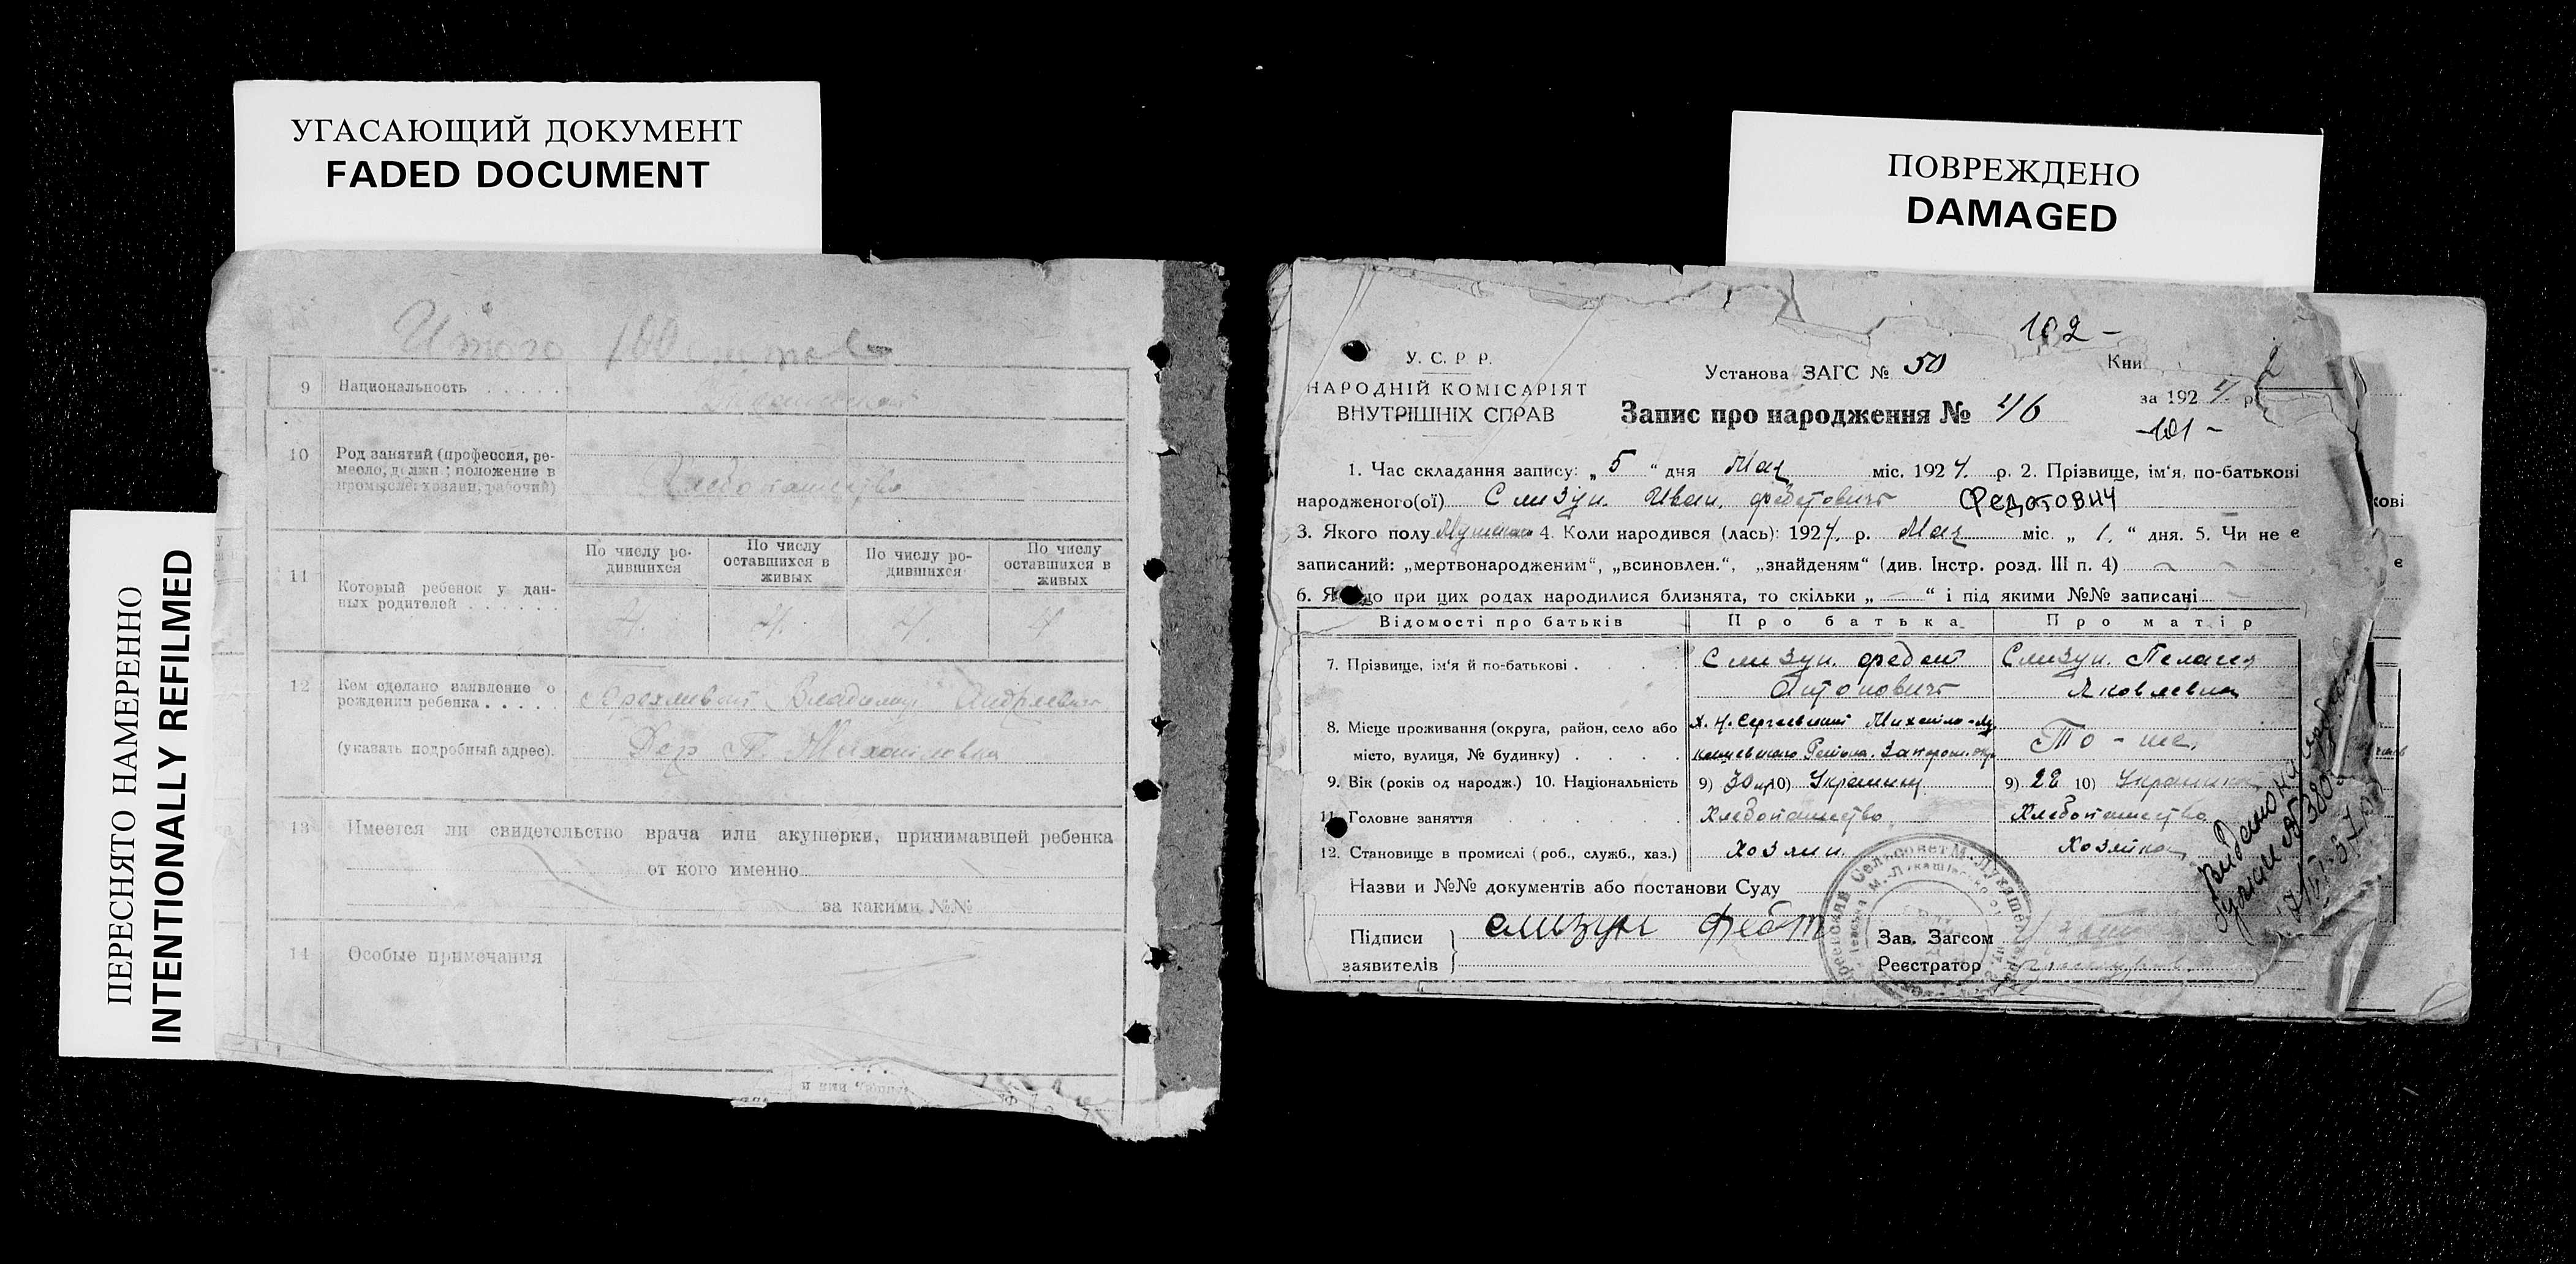 УГАСАЮЩИЙ ДОКУМЕНТ
FADED DOCUMENT
ПЕРЕСНЯТО НАМЕРЕННО
INTENTIONALLY REFILMED
Итого 160
9 Национальность . . . . . .
10 Род занятий (профессия, ре-
месло, должн.; положение в
промысле: хозяин, рабочий)
Хлебопашество
По числу ро-
дившихся
По числу
оставшихся в
живых
По числу ро-
дившихся
По числу
оставшихся в
живых
11 Который ребенок у дан-
ных родителей . . . . . .
4. 4. 4. 4
12 Кем сделано заявление о
рождении ребенка . . . . .
Владимир Андреевич
(указать подробный адрес).
Михайловка
13 Имеется ли свидетельство врача или акушерки, принимавшей ребенка
от кого именно
за какими №№
14 Особые примечания
ПОВРЕЖДЕНО
DAMAGED
102 -
У. С. Р. Р.
НАРОДНІЙ КОМІСАРІЯТ
ВНУТРІШНІХ СПРАВ
Установа ЗАГС № 50
Кни 2
за 1924 р
Запис про народження № 46
-101-
1. Час складання запису: „ 5 “ дня Мая міс. 1924. р. 2. Прізвище, ім‘я, по-батькові
народженого(ої) Слизун. Иван. Федотович Федотович
3. Якого полу 4. Коли народився (лась): 1924. р. Мая міс. „ 1. “ дня. 5. Чи не є
записаний: „мертвонародженим“, „всиновлен.“, „знайденям“ (див. Інстр. розд. III п. 4)
6. Якщо при цих родах народилися близнята, то скільки „ — “ і під якими №№ записані
Відомості про батьків Про батька Про матір
7. Прізвище, ім‘я й по-батькові . Слизун. Федот Слизун. Пелагея
Антонович Яковлевна
8. Місце проживання (округа, район, село або
місто, вулиця, № будинку)
Х. Н. Сергеевский Михайло-Лу
кашевского Района. Запорож. окр.
То - же.
9. Вік (років од народж.) 10. Національність 9) 30 10) Украинец 9) 28 10) Украинка
11. Головне заняття Хлебопашество Хлебопашество
12. Становище в промислі (роб., служб., хаз.) Хозяин. Хозяйка
Назви и №№ документів або постанови Суду
Підписи
заявителів
слизун Федот
Зав. Загсом
Реєстратор
кові
є